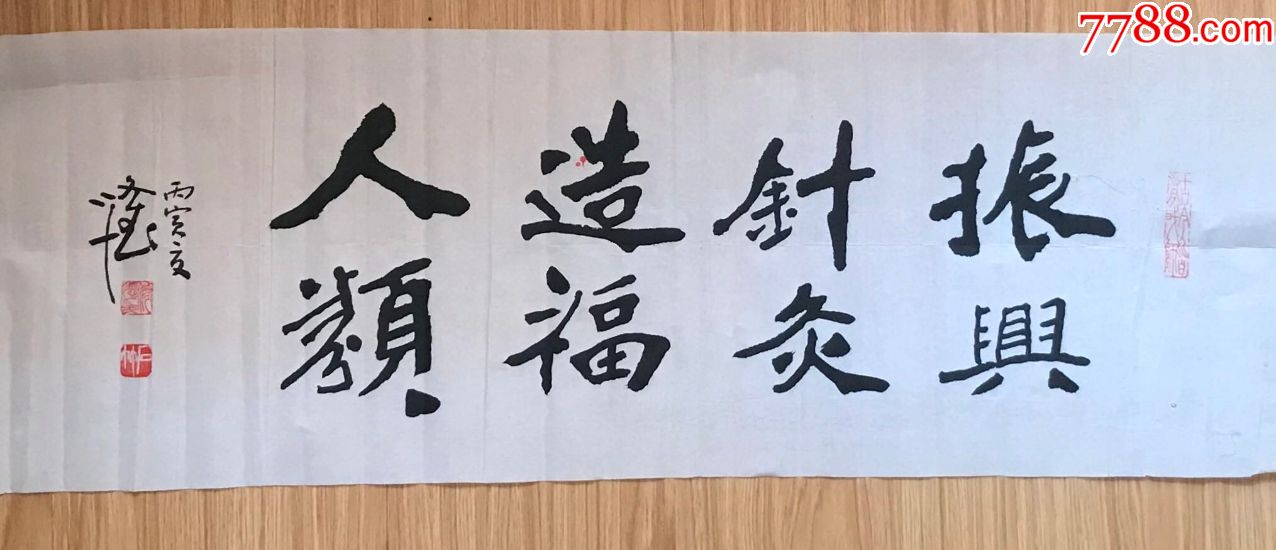 7788.com
振興
針灸
造福
人類
丙寅夏